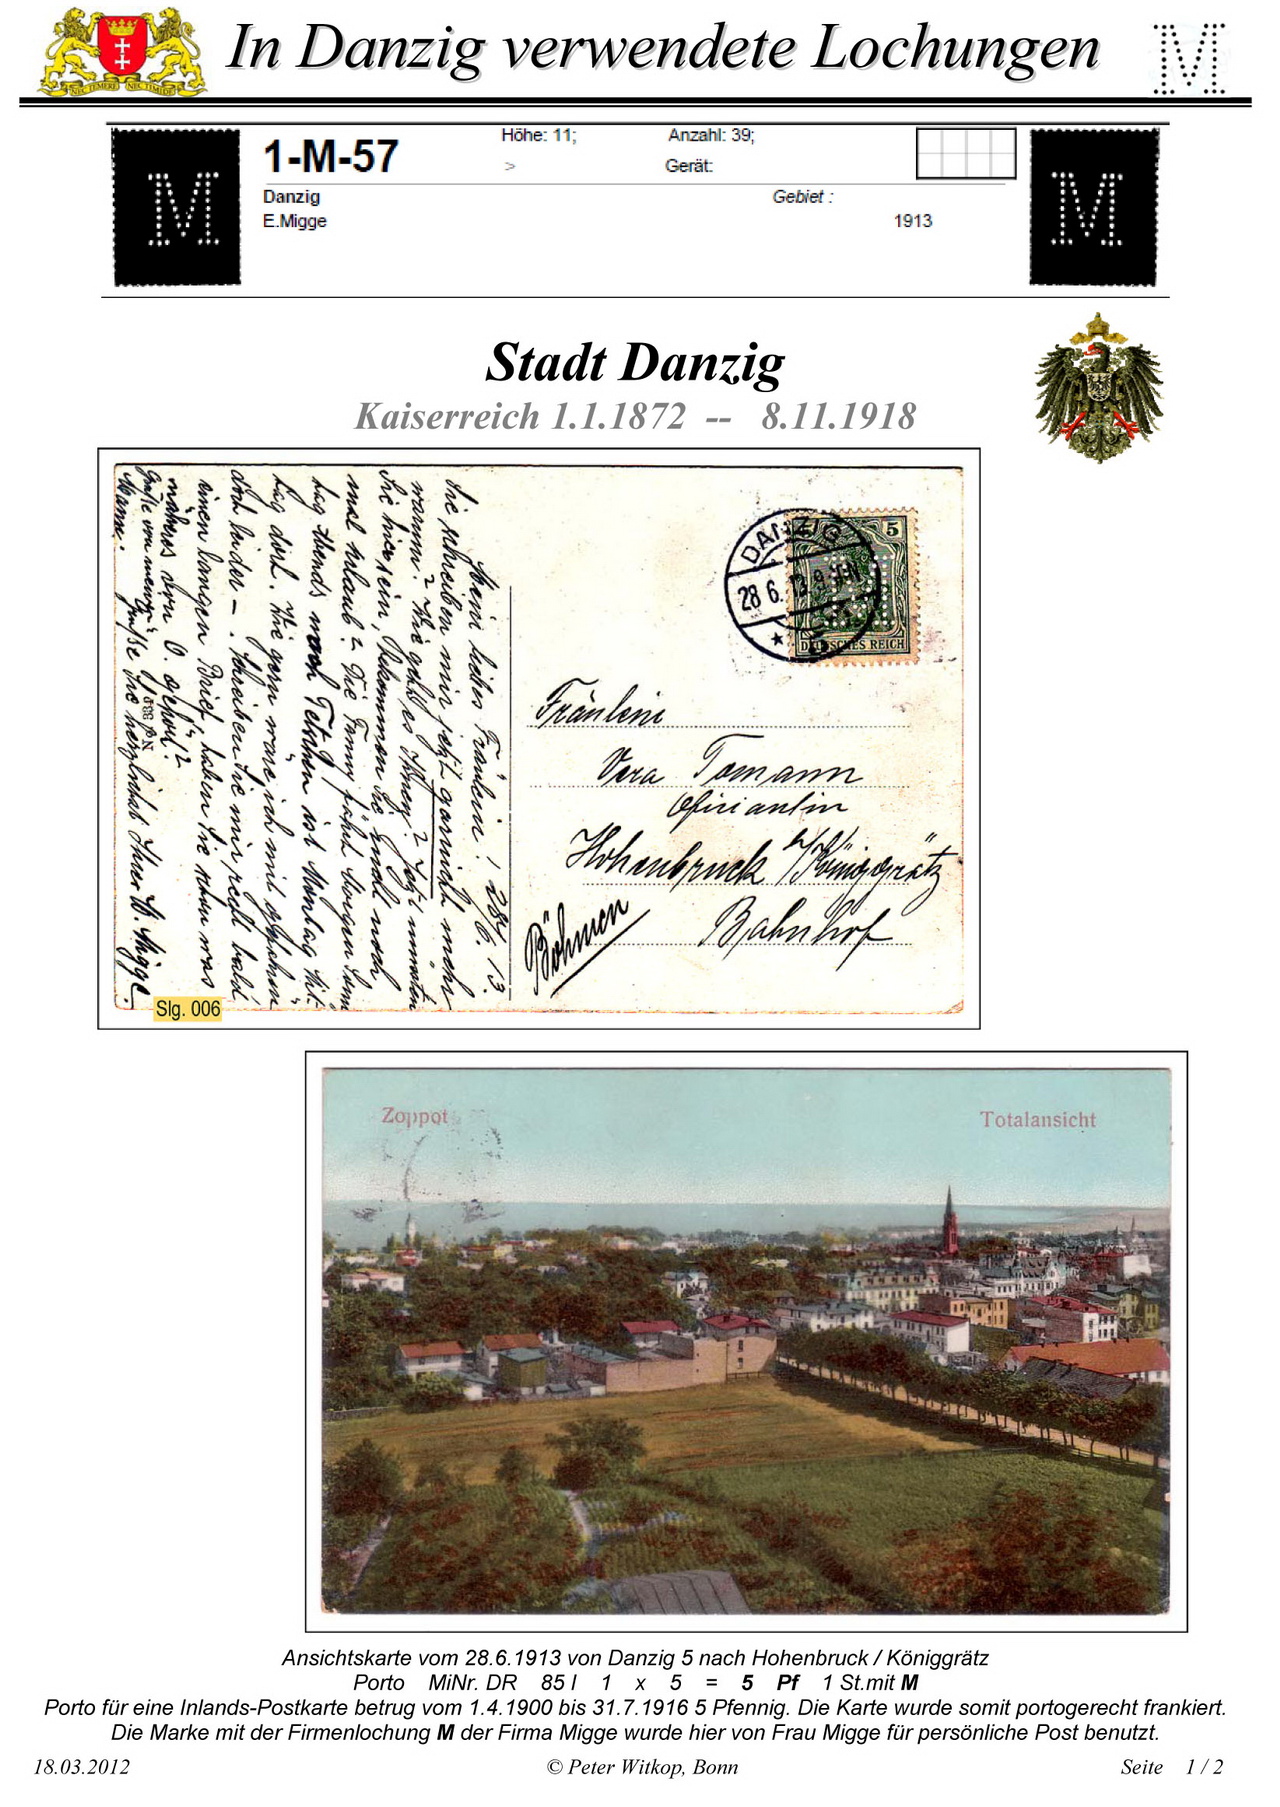 In Danzig verwendete Lochungen
NEC TEMERE NEC TIMIDE
M
1-M-57
Höhe: 11;
Anzahl: 39;
>
Gerät:
Danzig
Gebiet :
E.Migge
1913
M
M
Stadt Danzig
Kaiserreich 1.1.1872 -- 8.11.1918
28/6. 13.
Mein liebes Fräulein!
Sie schreiben mir jetzt garnicht mehr
warum? Wie geht es Ihnen? Jetzt müssten
Sie hier sein, bekommen Sie noch
mal Urlaub? Die Fanny fährt morgen
einen langen Brief, haben Sie schon was
näheres von O. gehört?
DANZIG
28 6. 13
5
DEUTSCHES REICH
Fräulein
Vera Tomann
Hohenbruck b/Königgrätz
Bahnhof
Böhmen
Slg. 006
Zoppot
Totalansicht
Ansichtskarte vom 28.6.1913 von Danzig 5 nach Hohenbruck / Königgrätz
Porto MiNr. DR 85 I 1 x 5 = 5 Pf 1 St.mit M
Porto für eine Inlands-Postkarte betrug vom 1.4.1900 bis 31.7.1916 5 Pfennig. Die Karte wurde somit portogerecht frankiert.
Die Marke mit der Firmenlochung M der Firma Migge wurde hier von Frau Migge für persönliche Post benutzt.
18.03.2012
© Peter Witkop, Bonn
Seite 1 / 2